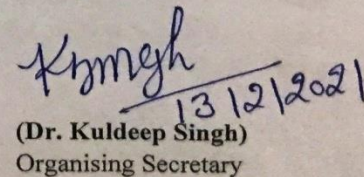 Ksingh
13/2/2021
(Dr. Kuldeep Singh)
Organising Secretary